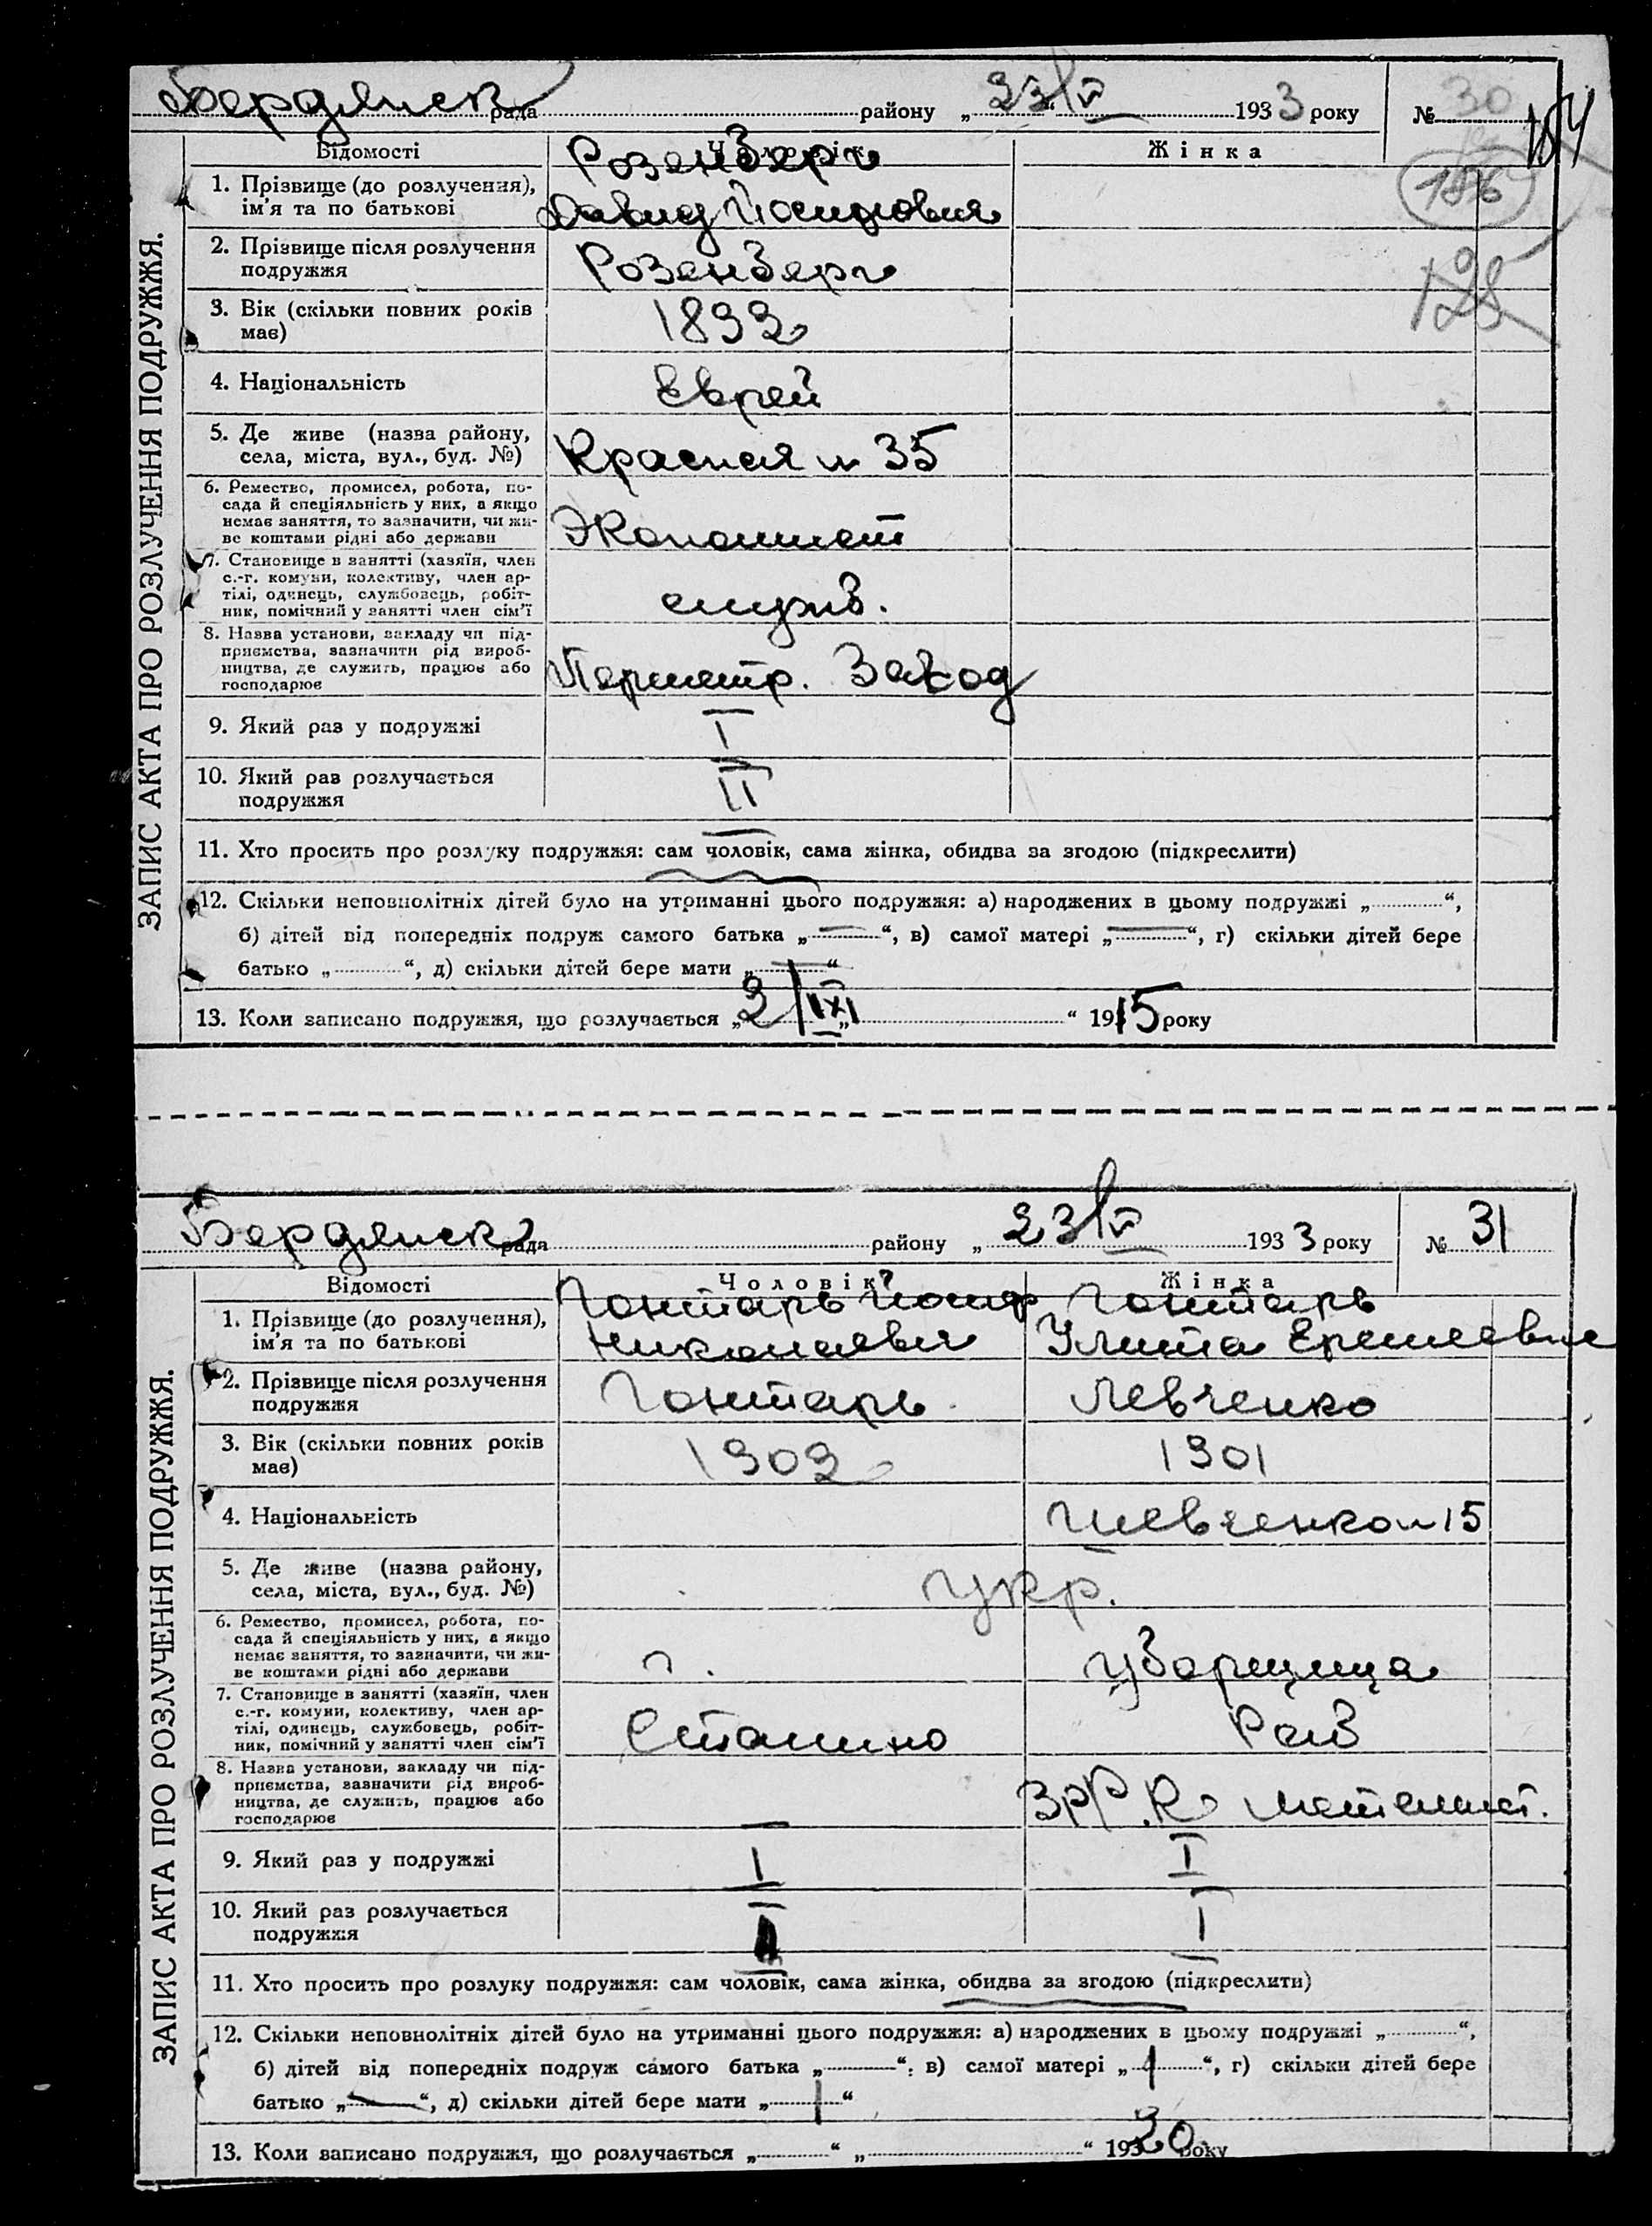 Бердянск рада району „23/V 1933 року № 30
184
Відомості Чоловік Жінка
186
128
ЗАПИС АКТА ПРО РОЗЛУЧЕННЯ ПОДРУЖЖЯ.
1. Прізвище (до розлучення), ім'я та по батькові
Розенберг
Давид Йосифович
2. Прізвище після розлучення подружжя
Розенберг
3. Вік (скільки повних років має)
1892
4. Національність
Еврей
5. Де живе (назва району, села, міста, вул., буд. №)
Красная № 35
6. Ремество, промисел, робота, посада й спеціяльність у них, а якщо немає заняття, то зазначити, чи живе коштами рідні або держави
Экономист
7. Становище в занятті (хазяїн, член с.-г. комуни, колективу, член артілі, одинець, службовець, робітник, помічний у занятті член сім'ї
служб.
8. Назва установи, закладу чи підприємства, зазначити рід виробництва, де служить, працює або господарює
Завод
9. Який раз у подружжі
I
10. Який раз розлучається подружжя
II
11. Хто просить про розлуку подружжя: сам чоловік, сама жінка, обидва за згодою (підкреслити)
12. Скільки неповнолітніх дітей було на утриманні цього подружжя: а) народжених в цьому подружжі „ “,
б) дітей від попередніх подруж самого батька „—“, в) самої матері „—“, г) скільки дітей бере
батько „ “, д) скільки дітей бере мати „—“
13. Коли записано подружжя, що розлучається „2/ “ 1915 року
Бердянск рада району „23/V 1933 року № 31
Відомості Чоловік Жінка
ЗАПИС АКТА ПРО РОЗЛУЧЕННЯ ПОДРУЖЖЯ.
1. Прізвище (до розлучення), ім'я та по батькові
Гонтарь Йосиф Гонтарь
Николаевич Улита Еремеевна
2. Прізвище після розлучення подружжя
Гонтарь Левченко
3. Вік (скільки повних років має)
1902 1901
4. Національність
Шевченко № 15
5. Де живе (назва району, села, міста, вул., буд. №)
укр.
6. Ремество, промисел, робота, посада й спеціяльність у них, а якщо немає заняття, то зазначити, чи живе коштами рідні або держави
г. уборщица
7. Становище в занятті (хазяїн, член с.-г. комуни, колективу, член артілі, одинець, службовець, робітник, помічний у занятті член сім'ї
Сталино Роб
8. Назва установи, закладу чи підприємства, зазначити рід виробництва, де служить, працює або господарює
— ЗРК
9. Який раз у подружжі
I I
10. Який раз розлучається подружжя
I
11. Хто просить про розлуку подружжя: сам чоловік, сама жінка, обидва за згодою (підкреслити)
12. Скільки неповнолітніх дітей було на утриманні цього подружжя: а) народжених в цьому подружжі „ “,
б) дітей від попередніх подруж самого батька „ “, в) самої матері „1“, г) скільки дітей бере
батько „—“, д) скільки дітей бере мати „1“
13. Коли записано подружжя, що розлучається „ “ „ “ 1930 року